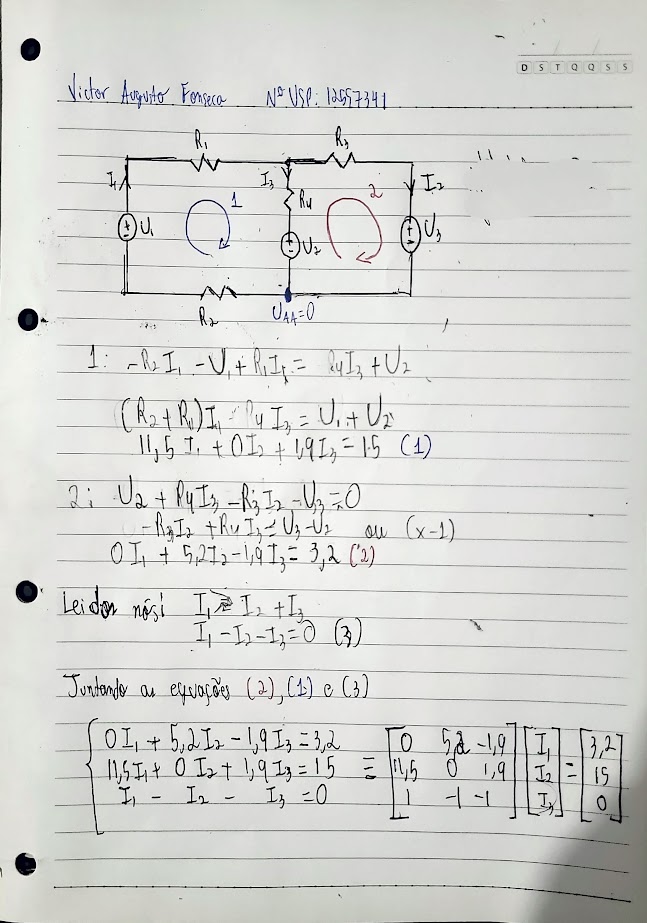 D S T Q Q S S
Victor Augusto Fonseca Nº USP: 12557341
R₁ R₃
I₁ I₃ 1 R₄ 2 I₂
U₁ U₂ U₃
R₂ U_AA=0
1: -R₂I₁ - U₁ + R₁I₁ = R₄I₃ + U₂
I₁ - R₄I₃ = U₁ + U₂
11,5 I₁ + 0I₂ + 1,9I₃ = 15 (1)
2: U₂ + R₄I₃ - R₃I₂ - U₃ = 0
-R₃I₂ + R₄I₃ = U₃ - U₂ ou (x-1)
0I₁ + 5,2I₂ - 1,9I₃ = 3,2 (2)
Lei dos nós: I₁ = I₂ + I₃
I₁ - I₂ - I₃ = 0 (3)
Juntando as equações (2), (1) e (3)
0I₁ + 5,2I₂ - 1,9I₃ = 3,2 0 5,2 -1,9 I₁ 3,2
11,5I₁ + 0I₂ + 1,9I₃ = 15 ≡ 11,5 0 1,9 I₂ = 15
I₁ - I₂ - I₃ = 0 1 -1 -1 I₃ 0